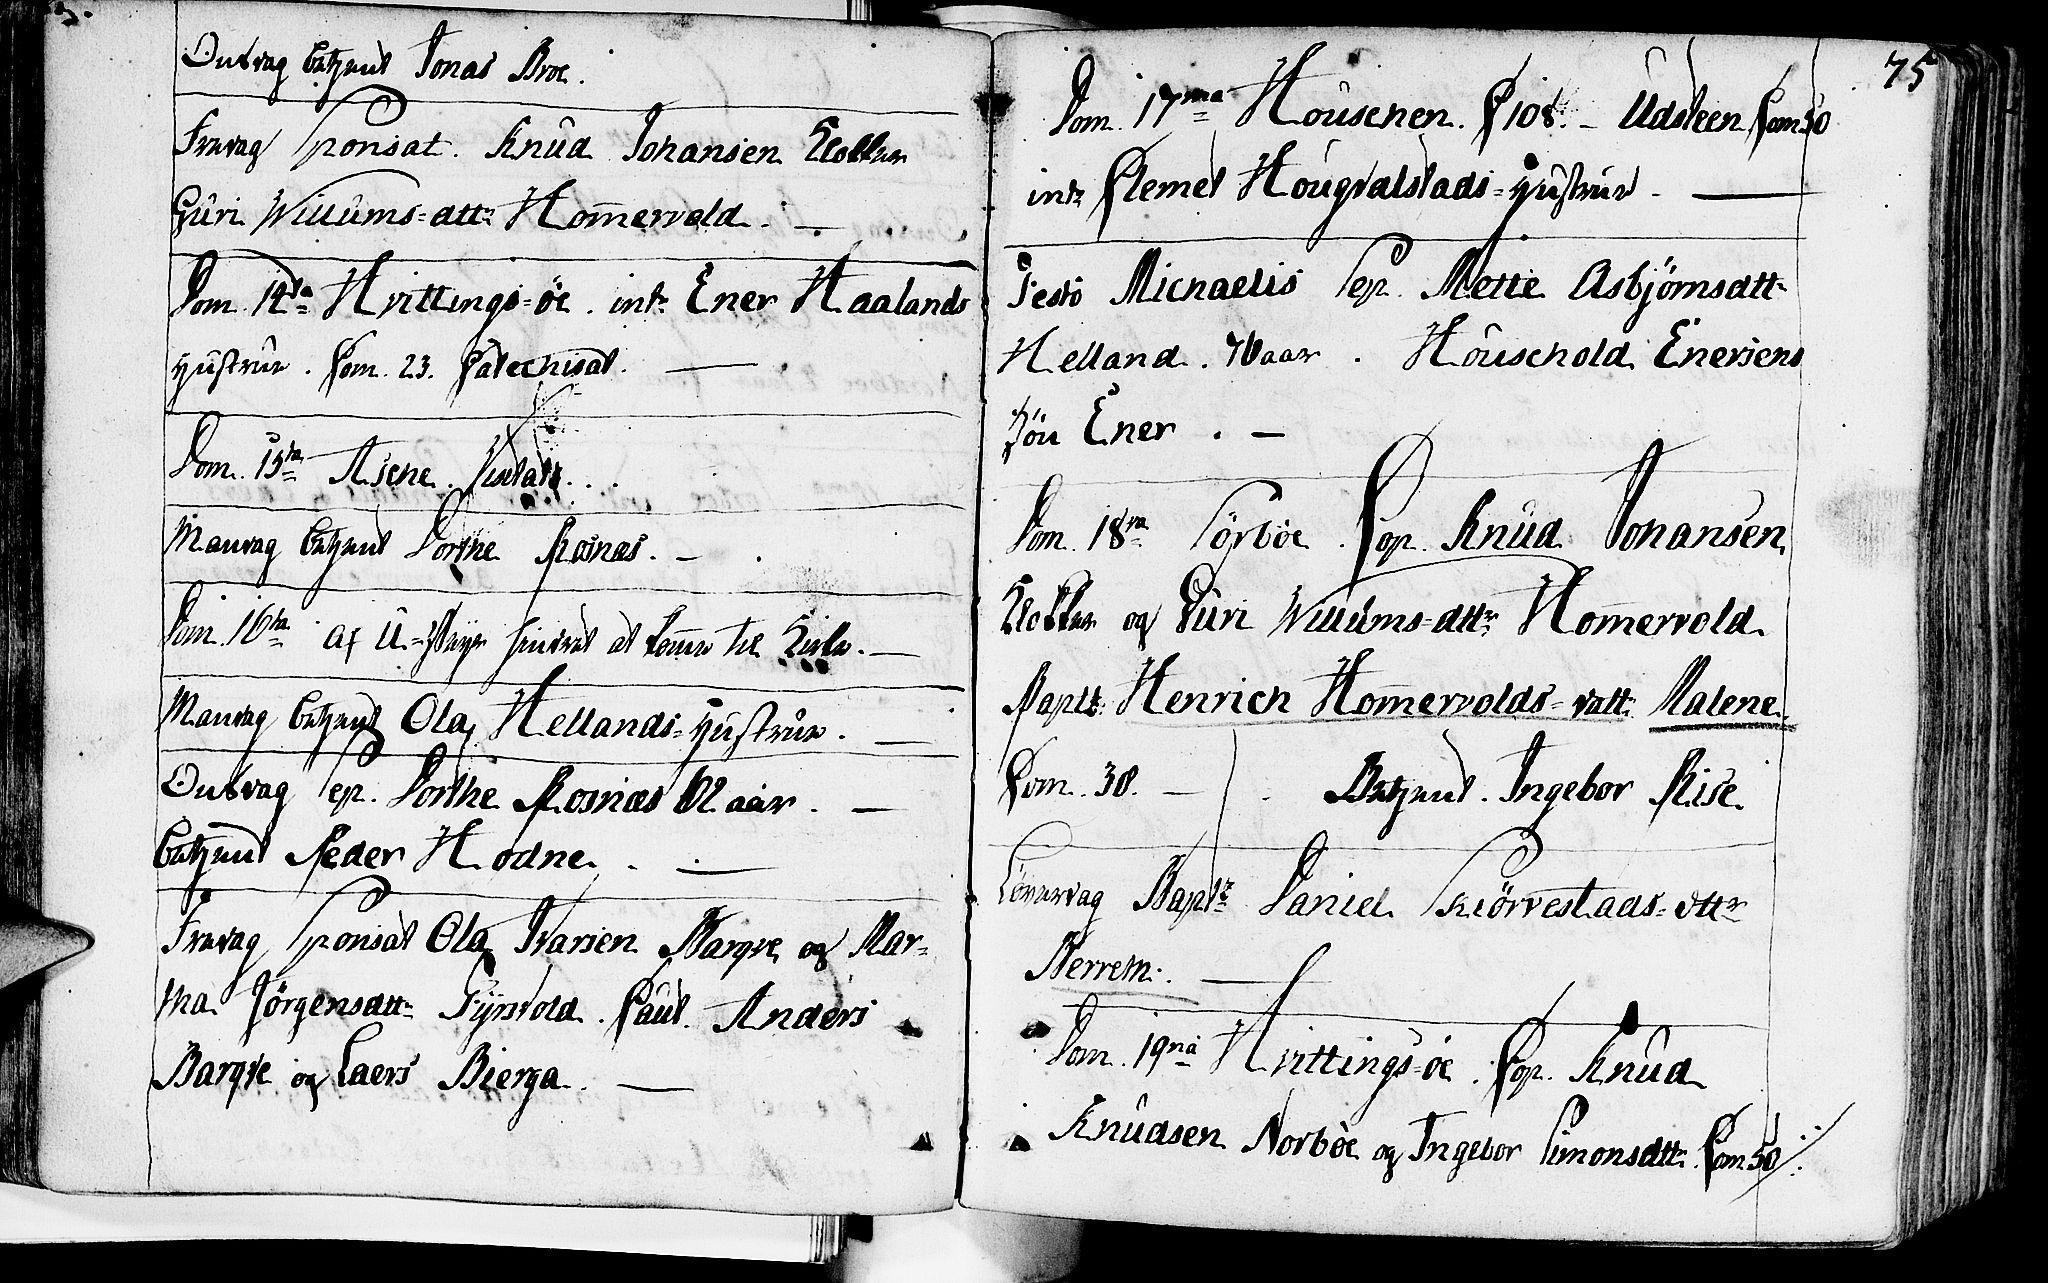 Onsdag betjent Jonas Broe.
Fredag Sponsat. Knud Johansen Klokker
Guri Willums=dttr Homervold. —
Dom. 14da Hvittings=öe. intr. Ener Haalands
Hustrue. Com. 23. Catechisat. —
Dom. 15ta Askene. Visitats...
Mandag betjent Dorthe Rosnæs. —
Dom. 16ta af U=Veyr hindret at komme til Kirke. —
Mandag betjent Ola Hellands=Hustrue. —
Onsdag Sep. Dorthe Rosnæs 62 aar. —
betjent Peder Hodne. —
Fredag Sponsat Ola Ivarsen Barqve og Mar=
tha Jörgensdttr Fyrsvold. Caut. Anders
Barqve og Laers Bierga. —
75
Dom. 17ma Houschen. C 108. — Udsteen Com 50
intr. Clemet Hougvalstads=Hustrue. —
Festo Michaelis Sep. Mette Asbjörnsdttr
Helland. 70 aar. Houschold Enersens
Sön Ener. —
Dom. 18va Sörböe. Cop. Knud Johansen
Klokker og Guri Willums=dttr Homervold.
Baptz. Henrich Homervolds=datt. Malene.
Com. 38. — Betjent. Ingebor Rise.
Löverdag Baptz Daniel Skiörvestads=dttr
Berrethe. —
Dom. 19na Hvittings=öe. Cop. Knud
Knudsen Norböe og Ingebor Simonsdttr. Com 50